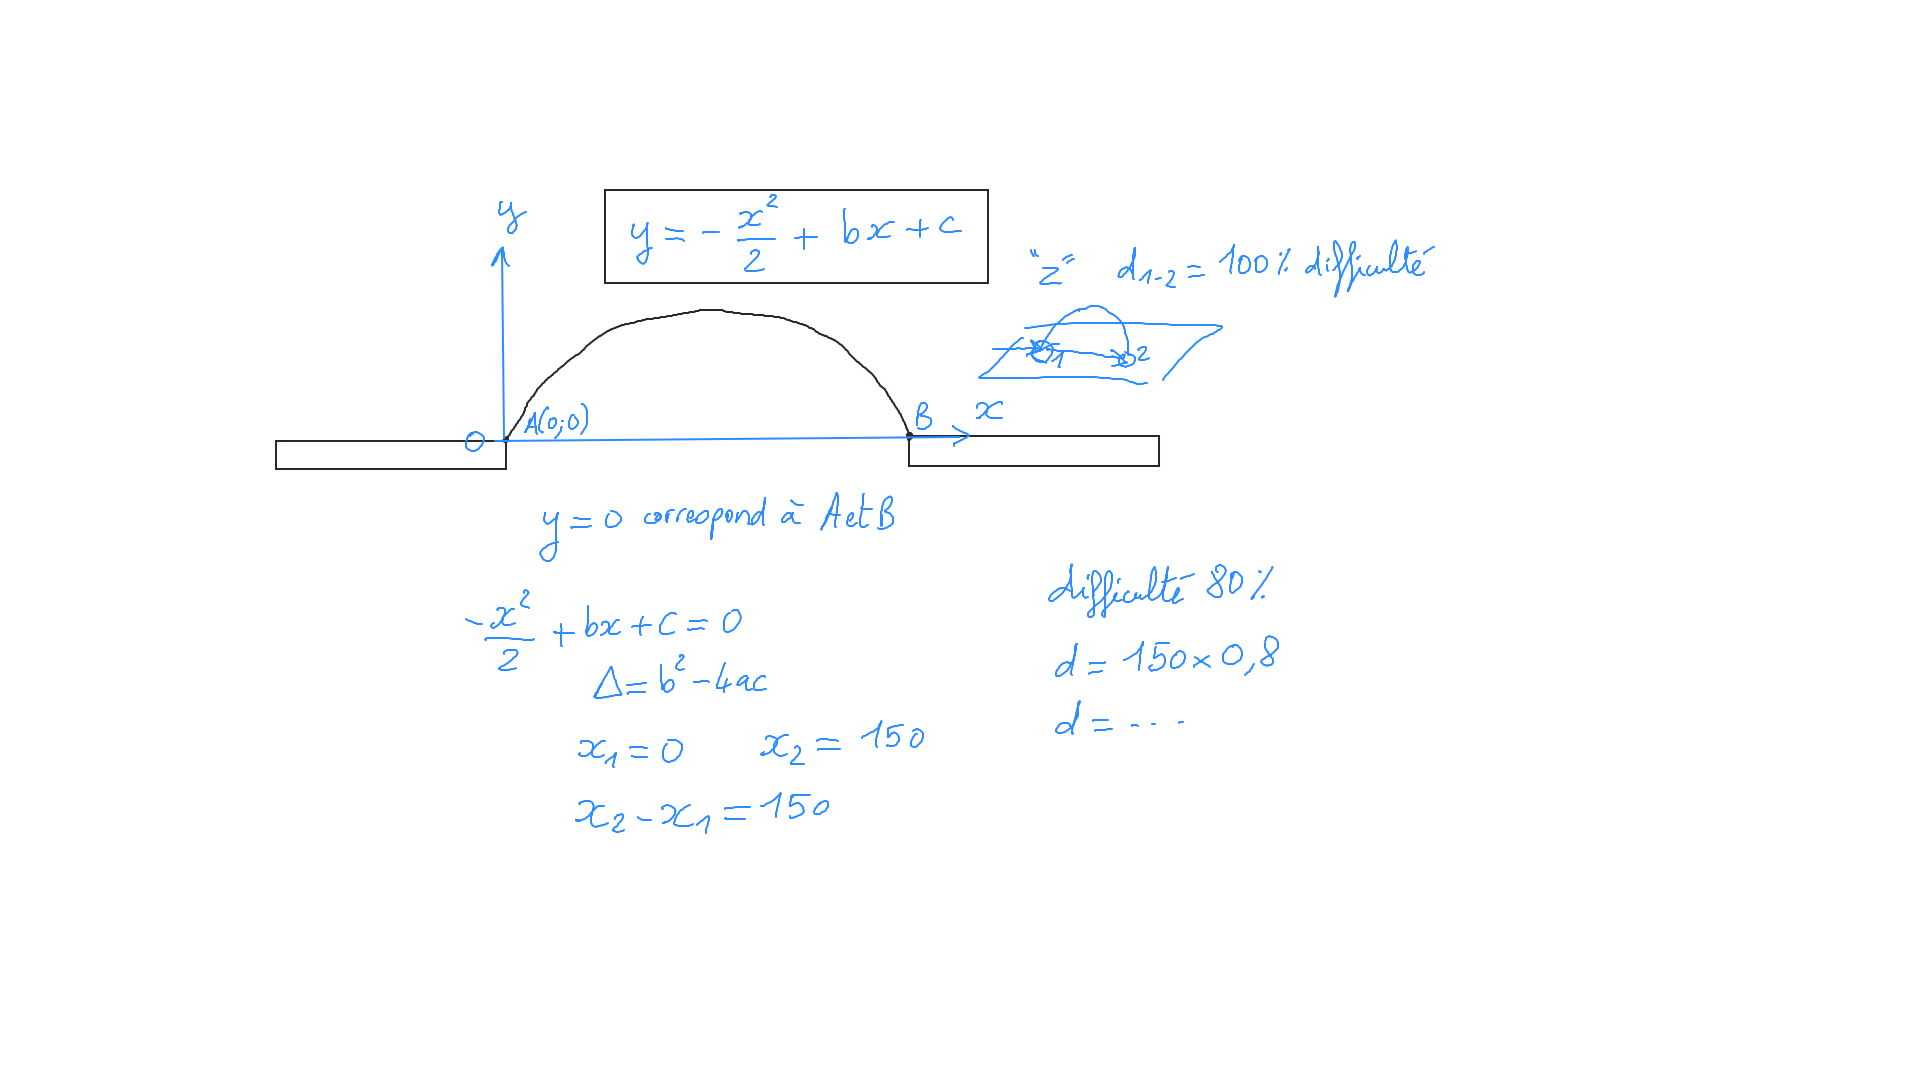 y
y = - x²/2 + bx + c
"Z" d₁₋₂ = 100% difficulté
1 2
O A(0;0) B x
y = 0 correspond à A et B
-x²/2 + bx + c = 0
Δ = b² - 4ac
x₁ = 0 x₂ = 150
x₂ - x₁ = 150
difficulté 80%
d = 150 × 0,8
d = ...